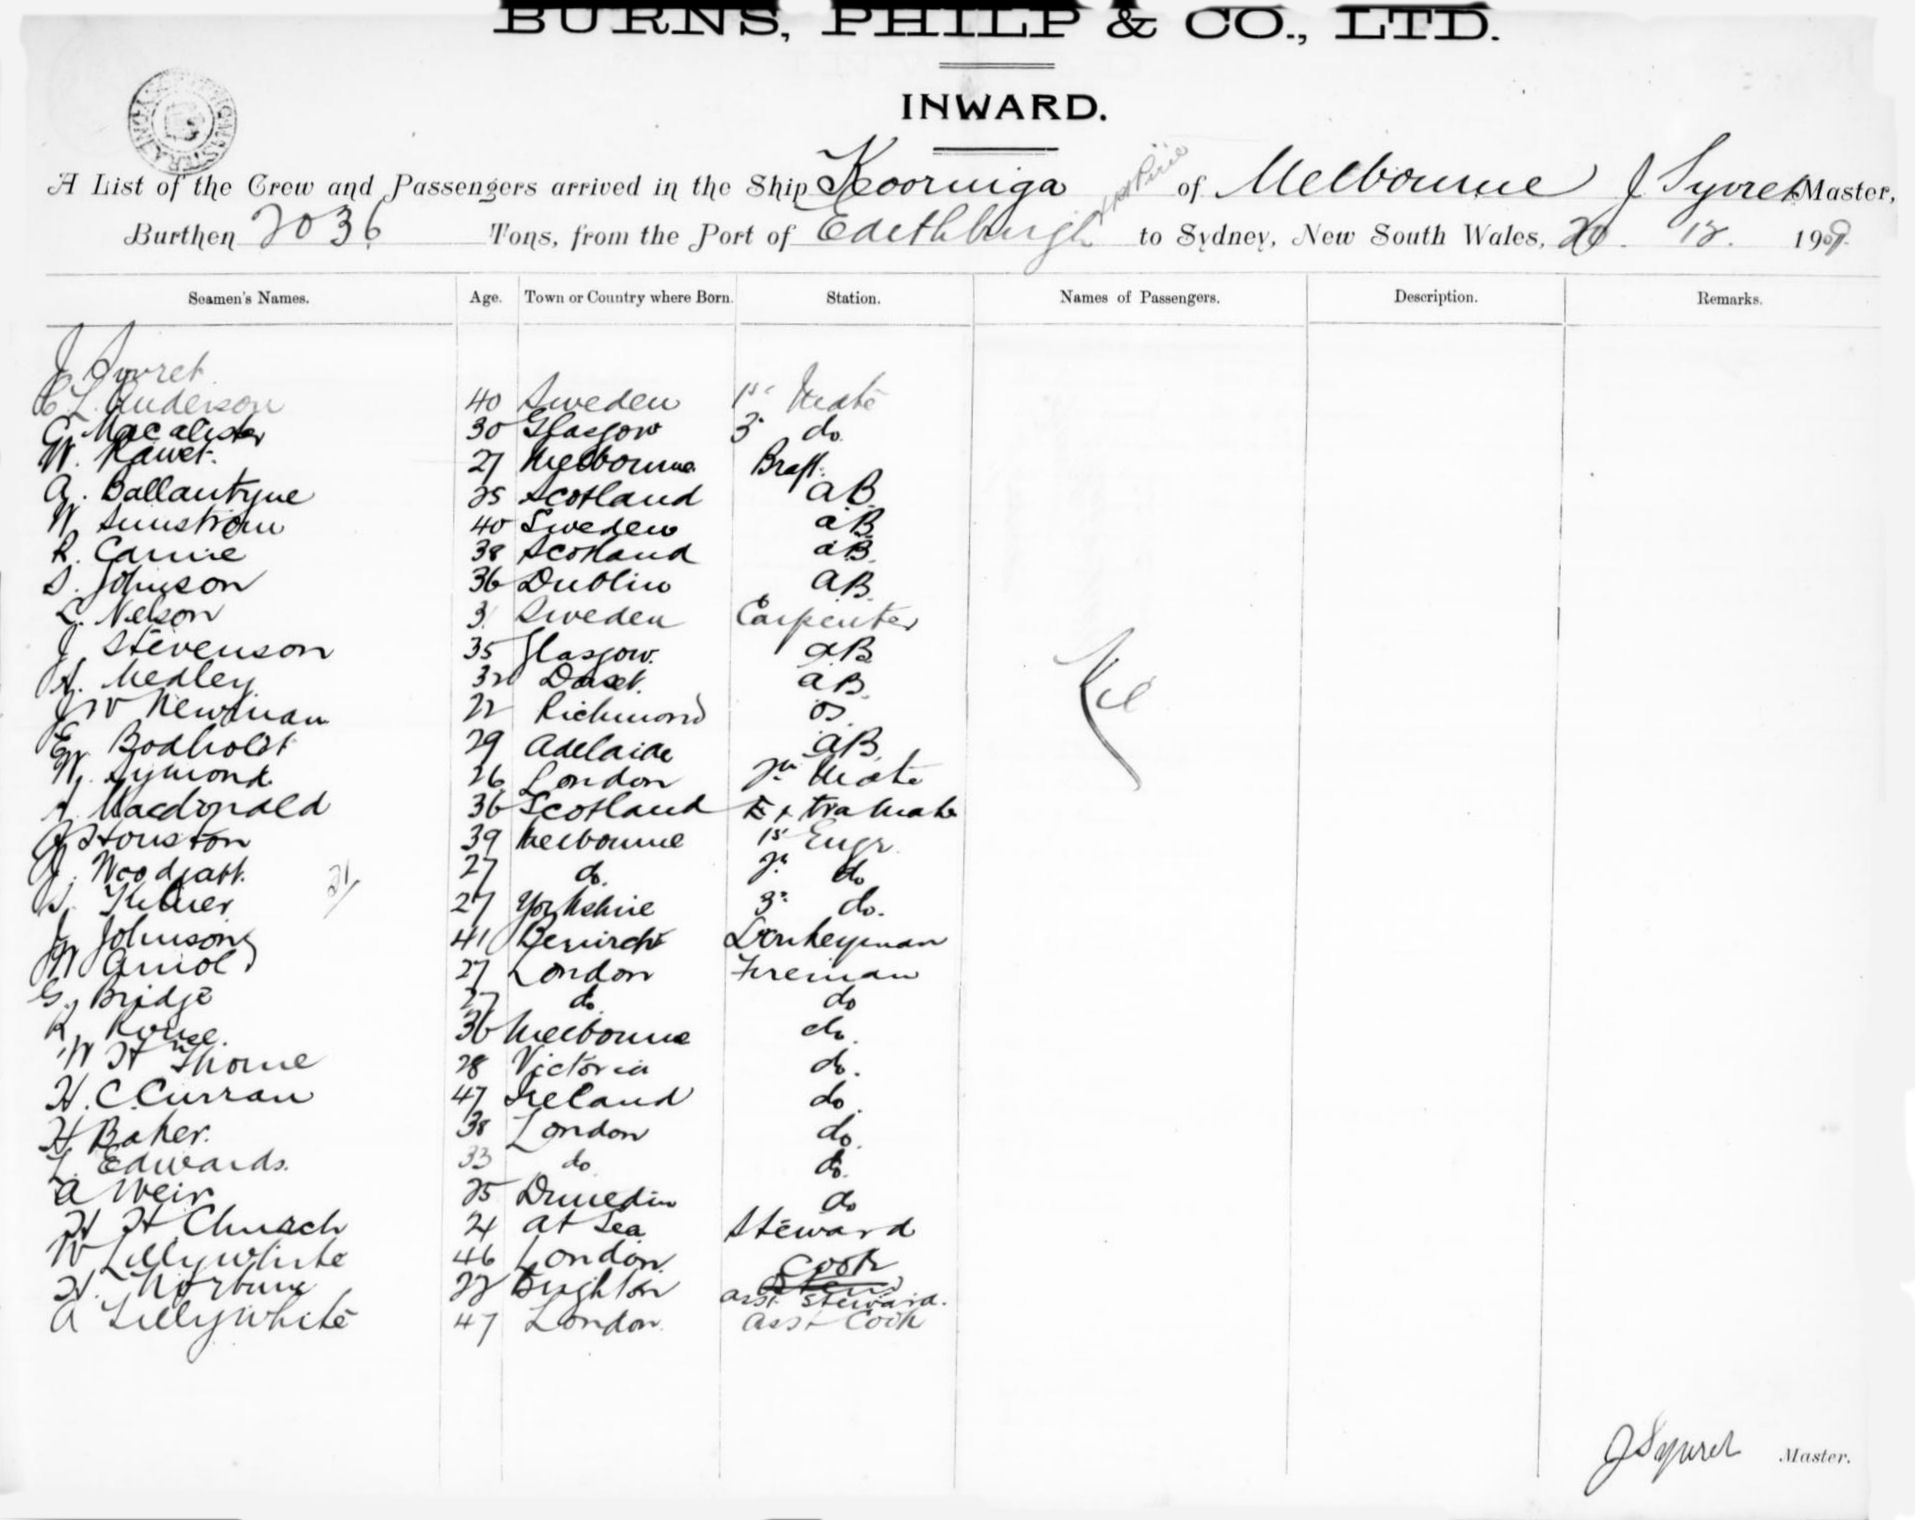 BURNS, PHILP & CO., LTD.
INWARD.
A List of the Crew and Passengers arrived in the Ship Kooringa of Melbourne J Syvret Master,
& Pt Pirie
Burthen 2036 Tons, from the Port of Edithburgh to Sydney, New South Wales, 20. 12. 1909
Seamen's Names. Age. Town or Country where Born. Station. Names of Passengers. Description. Remarks.
J Syvret
C L Anderson 40 Sweden 1st Mate
C. Macalister 30 Glasgow 3rd do.
W. 27 Melbourne
A. Ballantyne 25 Scotland AB
W. 40 Sweden AB
R. Carrie 38 Scotland AB.
S. Johnson 36 Dublin AB.
L. Nelson 3 Sweden Carpenter
J Stevenson 35 Glasgow. AB
H. Medley. 32 Dorset. AB.
J W Newman 22 Richmond OS.
E. Bodholdt 29 Adelaide AB.
W. Symonds 26 London 2nd Mate
Macdonald 36 Scotland Extra Mate
J Houston 39 Melbourne 1st Engr.
J. Woodgatt. 27 do. 2nd do
21/
27 Yorkshire 3rd do.
J Johnson 41 Donkeyman
W Arnold 27 London Fireman
G. Bridge 27 do. do
R. Rouse. 36 Melbourne do.
W H Thorne 28 Victoria do.
H. C. Curran 47 Ireland do.
H Baker. 38 London do.
L. Edwards. 33 do do.
A Weir 25 Dunedin do
H H Church 21 At Sea Steward
W Lillywhite 46 London. Cook
H. 22 Brighton asst Steward.
A Lillywhite 47 London. Asst Cook
Nil
J Syvret Master.